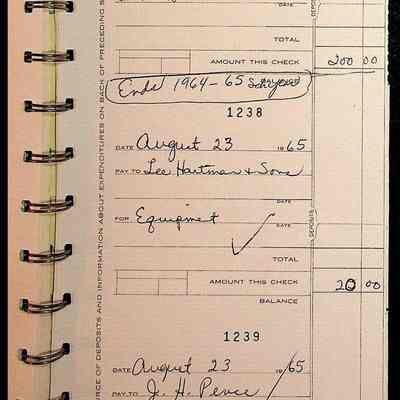 DATE
TOTAL
AMOUNT THIS CHECK 200 00
Ends 1964-65 School year
1238
DATE August 23 1965
PAY TO Lee Hartman & Sons
DATE
FOR Equipment
DATE
TOTAL
AMOUNT THIS CHECK 20 00
BALANCE
1239
DATE August 23 /65
PAY TO J. H. Pence
DEPOSITS
RCE OF DEPOSITS AND INFORMATION ABOUT EXPENDITURES ON BACK OF PRECEDING S